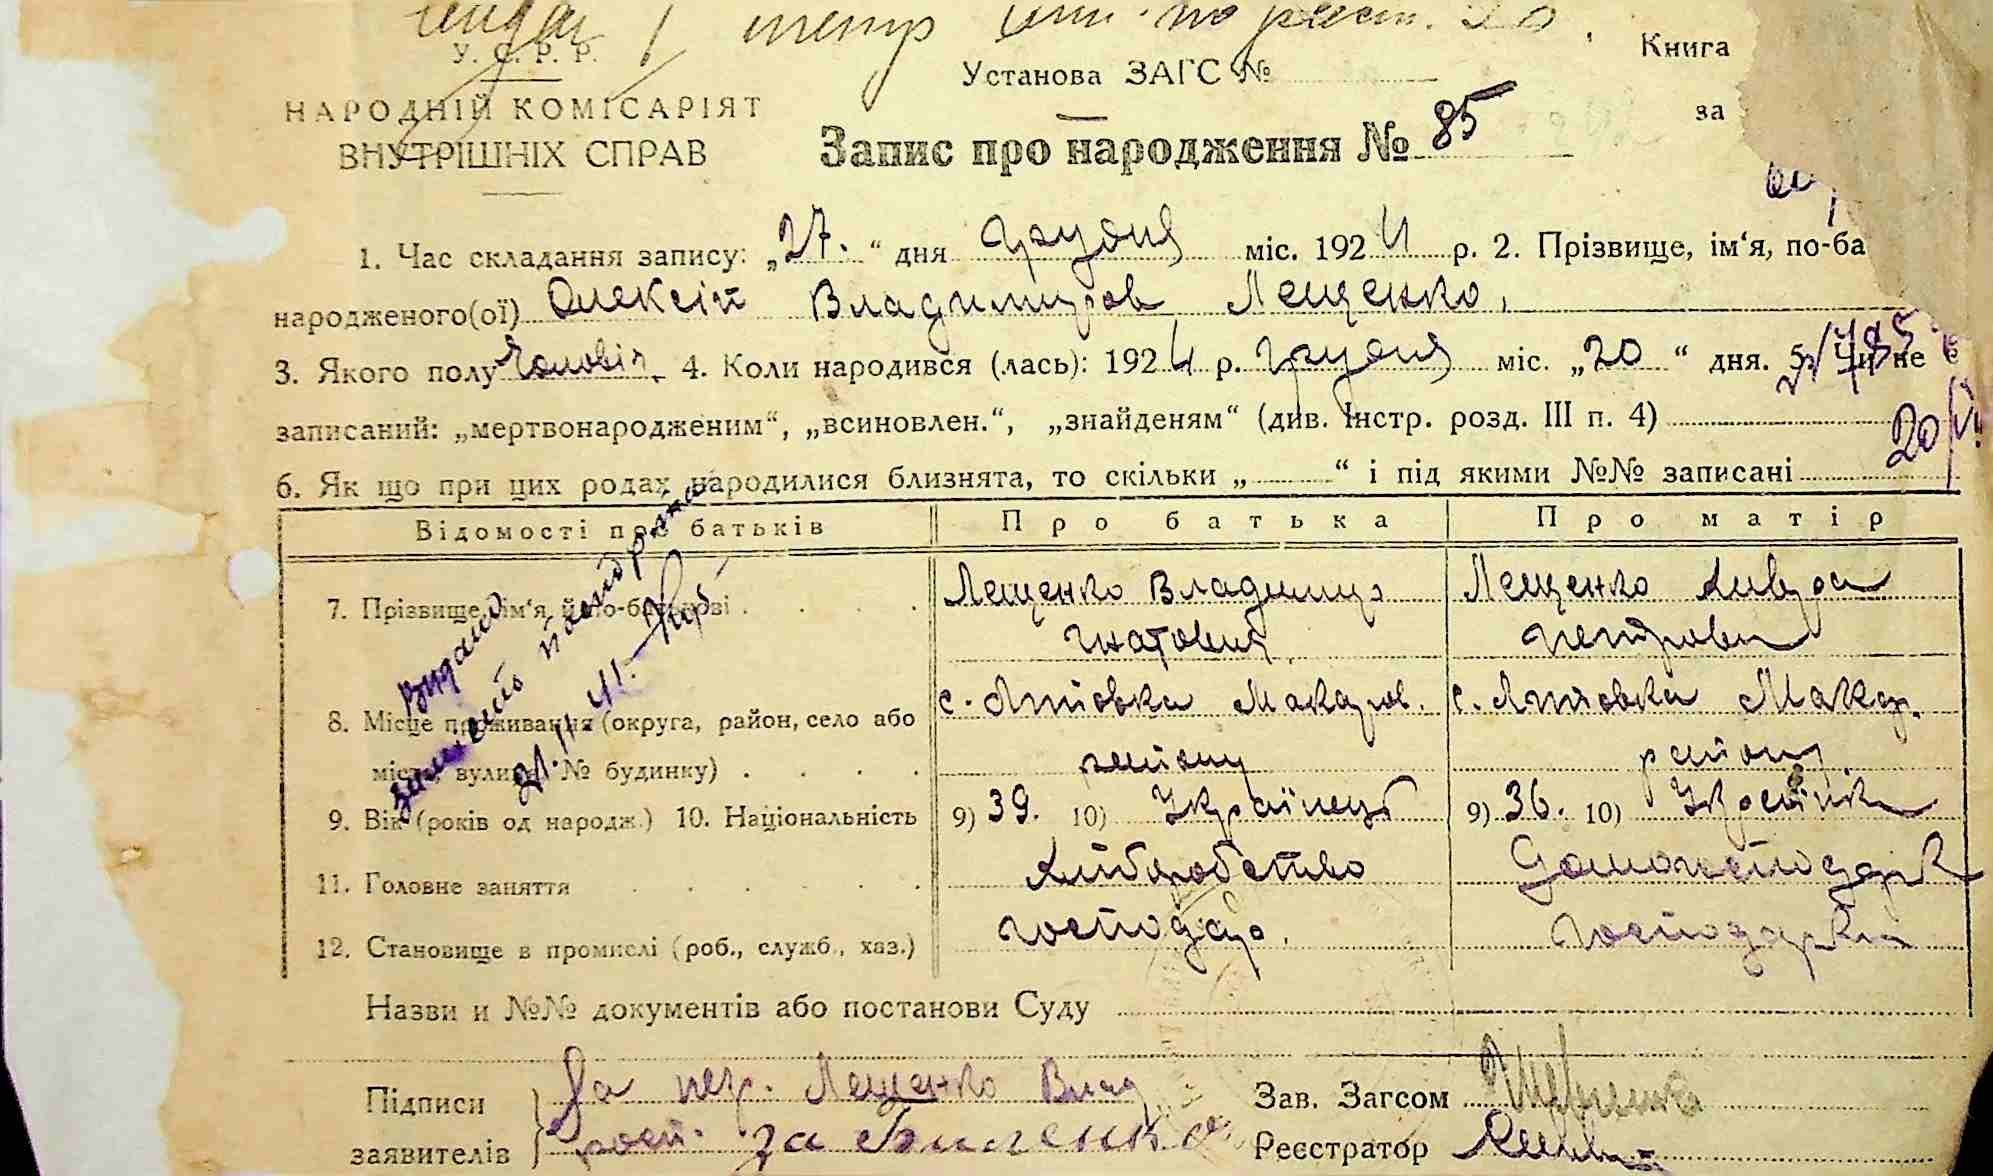 У. С. Р. Р.
Установа ЗАГС №
Книга
НАРОДНІЙ КОМІСАРІЯТ
за
ВНУТРІШНІХ СПРАВ
Запис про народження № 85
1. Час складання запису: „27.“ дня грудня міс. 1924 р. 2. Прізвище, ім‘я, по-ба
народженого(ої) Олексій Владимиров Лещенко,
3. Якого полу Чоловіч. 4. Коли народився (лась): 1924 р. грудня міс. „20“ дня. 5. Чи не є
записаний: „мертвонародженим“, „всиновлен.“, „знайденям“ (див. Інстр. розд. III п. 4)
6. Як що при цих родах народилися близнята, то скільки „ “ і під якими №№ записані
Відомості про батьків Про батька Про матір
7. Прізвище, ім‘я, й по-батькові Лещенко Владимир Лещенко
Гнатович Петрова
8. Місце проживання (округа, район, село або с. Макаров. с. Макар.
місто, вулиця, № будинку) району району
9. Вік (років од народж.) 10. Національність 9) 39. 10) Українець 9) 36. 10) Українка
11. Головне заняття Хліборобство Домогосподарк
12. Становище в промислі (роб., служб., хаз.) господар. Господарка
Назви и №№ документів або постанови Суду
Підписи За Лещенко Влад
Зав. Загсом
заявителів за Биленко
Реєстратор